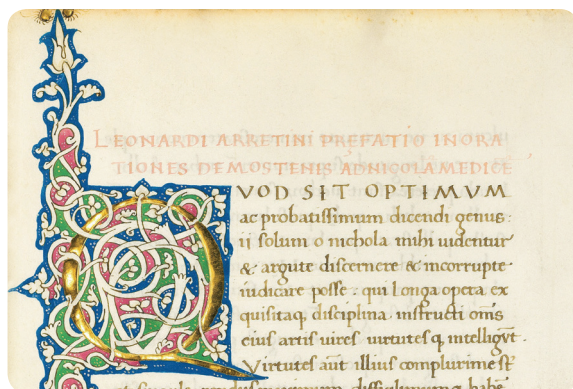 LEONARDI ARRETINI PREFATIO IN ORA
TIONES DEMOSTENIS AD NICOLA MEDICE
QVOD SIT OPTIMVM
ac probatissimum dicendi genus:
ii solum o nichola mihi uidentur
& argute discernere & incorrupte
iudicare posse. qui longa opera ex
quisitaq disciplina instructi om̅s
eius artis uires uirtutesq intelligv̅t.
Virtutes aut illius complurime st̅